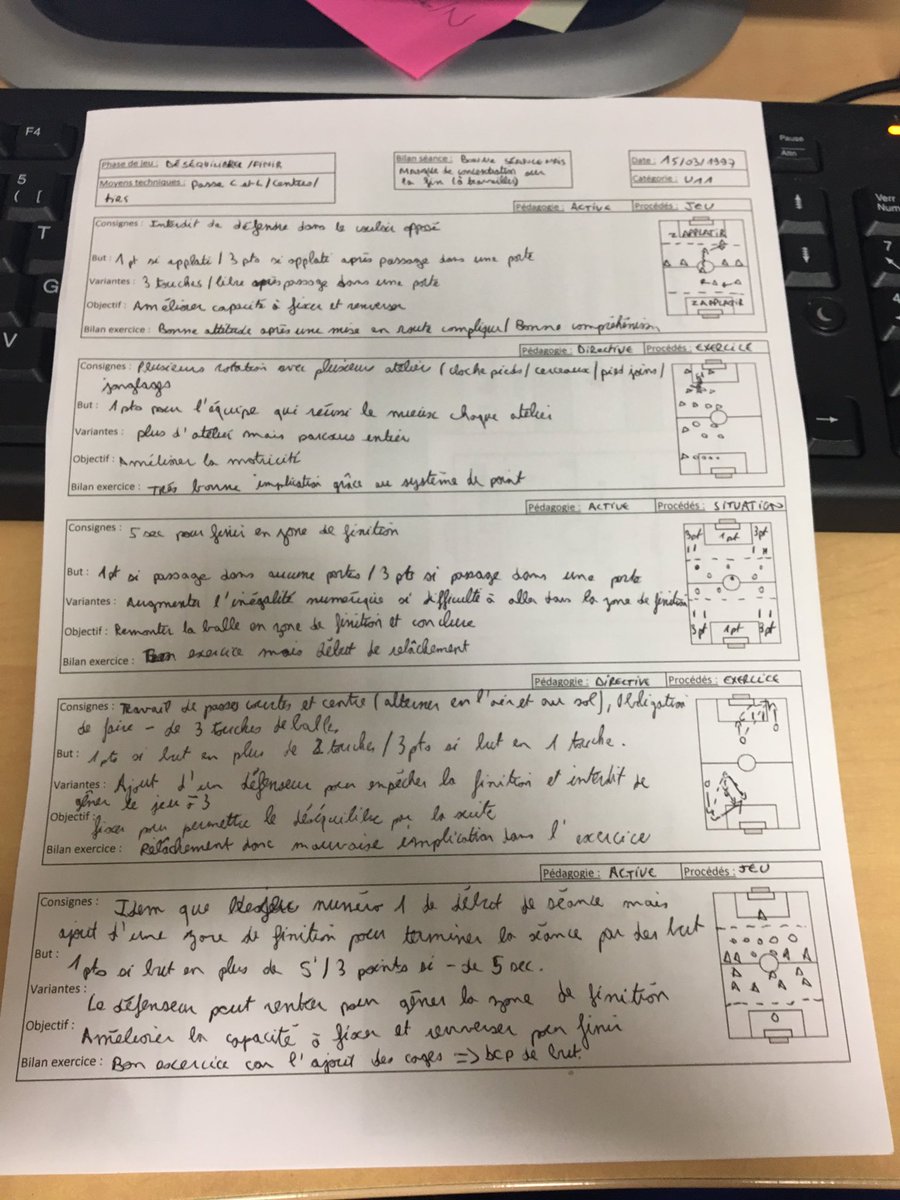 F4
5
( [
T
G
V
Pause
Attn
Verr
Num
7
4
1
Phase de jeu : DÉSÉQUILIBRER / FINIR
Moyens techniques : Passe C et L / Centres /
tirs
Bilan séance : Bonne SÉANCE MAIS
Manque de concentration sur
la fin (à travailler)
Date : 15/03/1997
Catégorie : U11
Pédagogie : ACTIVE Procédés : JEU
Consignes : Interdit de défendre dans le couloir opposé
But : 1 pt si applati / 3 pts si applati après passage dans une porte
Variantes : 3 touches / libre après passage dans une porte
Objectif : Améliorer capacité à fixer et renverser
Bilan exercice : Bonne attitude après une mise en route compliquée / Bonne compréhension
Z APPLATIR
Z APPLATIR
Pédagogie : DIRECTIVE Procédés : EXERCICE
Consignes : Plusieurs rotation avec plusieurs ateliers (cloche pieds / cerceaux / pied joins /
jonglages
But : 1 pts pour l'équipe qui réussi le mieux chaque atelier
Variantes : plus d'atelier mais parcours entier
Objectif : Améliorer la motricité
Bilan exercice : TRÈS bonne implication grâce au système de point
Pédagogie : ACTIVE Procédés : SITUATION
Consignes : 5 sec pour finir en zone de finition
But : 1 pt si passage dans aucune portes / 3 pts si passage dans une porte
Variantes : Augmenter l'inégalité numérique si difficulté à aller dans la zone de finition
Objectif : Remonter la balle en zone de finition et conclure
Bilan exercice : Bon exercice mais début de relâchement
3pt 1pt 3pt
3pt 1pt 3pt
Pédagogie : DIRECTIVE Procédés : EXERCICE
Consignes : Travail de passes courtes et centre (alterner en l'air et au sol), Obligation
de faire - de 3 touches de balles
But : 1 pts si but en plus de 2 touches / 3 pts si but en 1 touche.
Variantes : Ajout d'un défenseur pour empêcher la finition et interdit de
gêner le jeu à 3
Objectif : fixer pour permettre le déséquilibre par la suite
Bilan exercice : Relâchement donc mauvaise implication dans l'exercice
Pédagogie : ACTIVE Procédés : JEU
Consignes : Idem que numéro 1 de début de séance mais
ajout d'une zone de finition pour terminer la séance par des but
But : 1 pts si but en plus de 5' / 3 points si - de 5 sec.
Variantes : Le défenseur peut rentrer pour gêner la zone de finition
Objectif : Améliorer la capacité à fixer et renverser pour finir
Bilan exercice : Bon exercice car l'ajout des cages => bcp de but